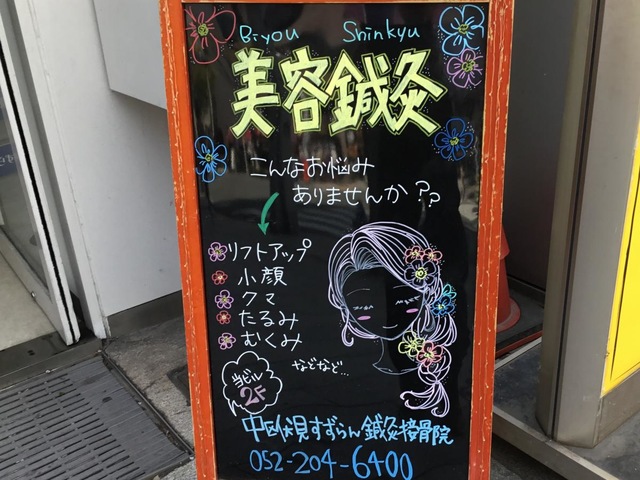 Biyou Shinkyu
美容鍼灸
こんなお悩み
ありませんか??
リフトアップ
小顔
クマ
たるみ
むくみ
などなど...
当ビル
2F
中区伏見すずらん鍼灸接骨院
052-204-6400